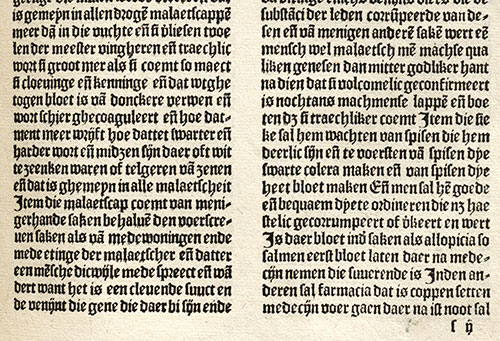 is gemeyn in allen drogẽ malaetscappẽ
meer dã in die vuchte eñ si v̉liesen twoe
len der meester vingheren eñ traechlic
wort si groot mer als si coemt so maect
si cloevinge eñ kenninge eñ dat wtghe
togen bloet is vã donckere verwen eñ
wort schier ghecoaguleert eñ hoe dat-
ment meer wrijft hoe dattet swarter eñ
harder wort eñ midzen sijn daer oft wit
te zeenken waren of telgeren vã zenen
eñ dat is ghemeyn in alle malaetscheit
Item die malaetscap coemt van meni-
gerhande saken behaluẽ den voerscre-
uen saken als vã mede woningen ende
mede etinge der malaetscher eñ datter
een mẽsche dicwijle mede spreect eñ wã
dert want het is een cleuende suuct en
de venijnt die gene die daer bi sijn ende
substãci der leden corrũpeerde van de-
sen eñ vã menigen anderẽ sakẽ wert eẽ
mensch wel malaetsch mẽ machse qua
liken genesen dan mitter godliker hant
na dien dat si volcomelic geconfirmeert
is nochtans machmense lappẽ eñ boe
ten dz si traechliker coemt Item die sie
ke sal hem wachten van spisen die hem
deerlic sijn eñ te voersten vã spisen dye
swarte colera maken eñ van spisen dye
heet bloet maken Eñ men sal hẽ goede
eñ bequaem dyete ordineren die nz hae
stelic gecorrumpeert of v̉keert en wert
Is daer bloet ind̉ saken als allopicia so
salmen eerst bloet laten daer na mede-
cijn nemen die suuerende is Inden an-
deren sal farmacia dat is coppen setten
medecijn voer gaen daer na ist noot sal
s ij